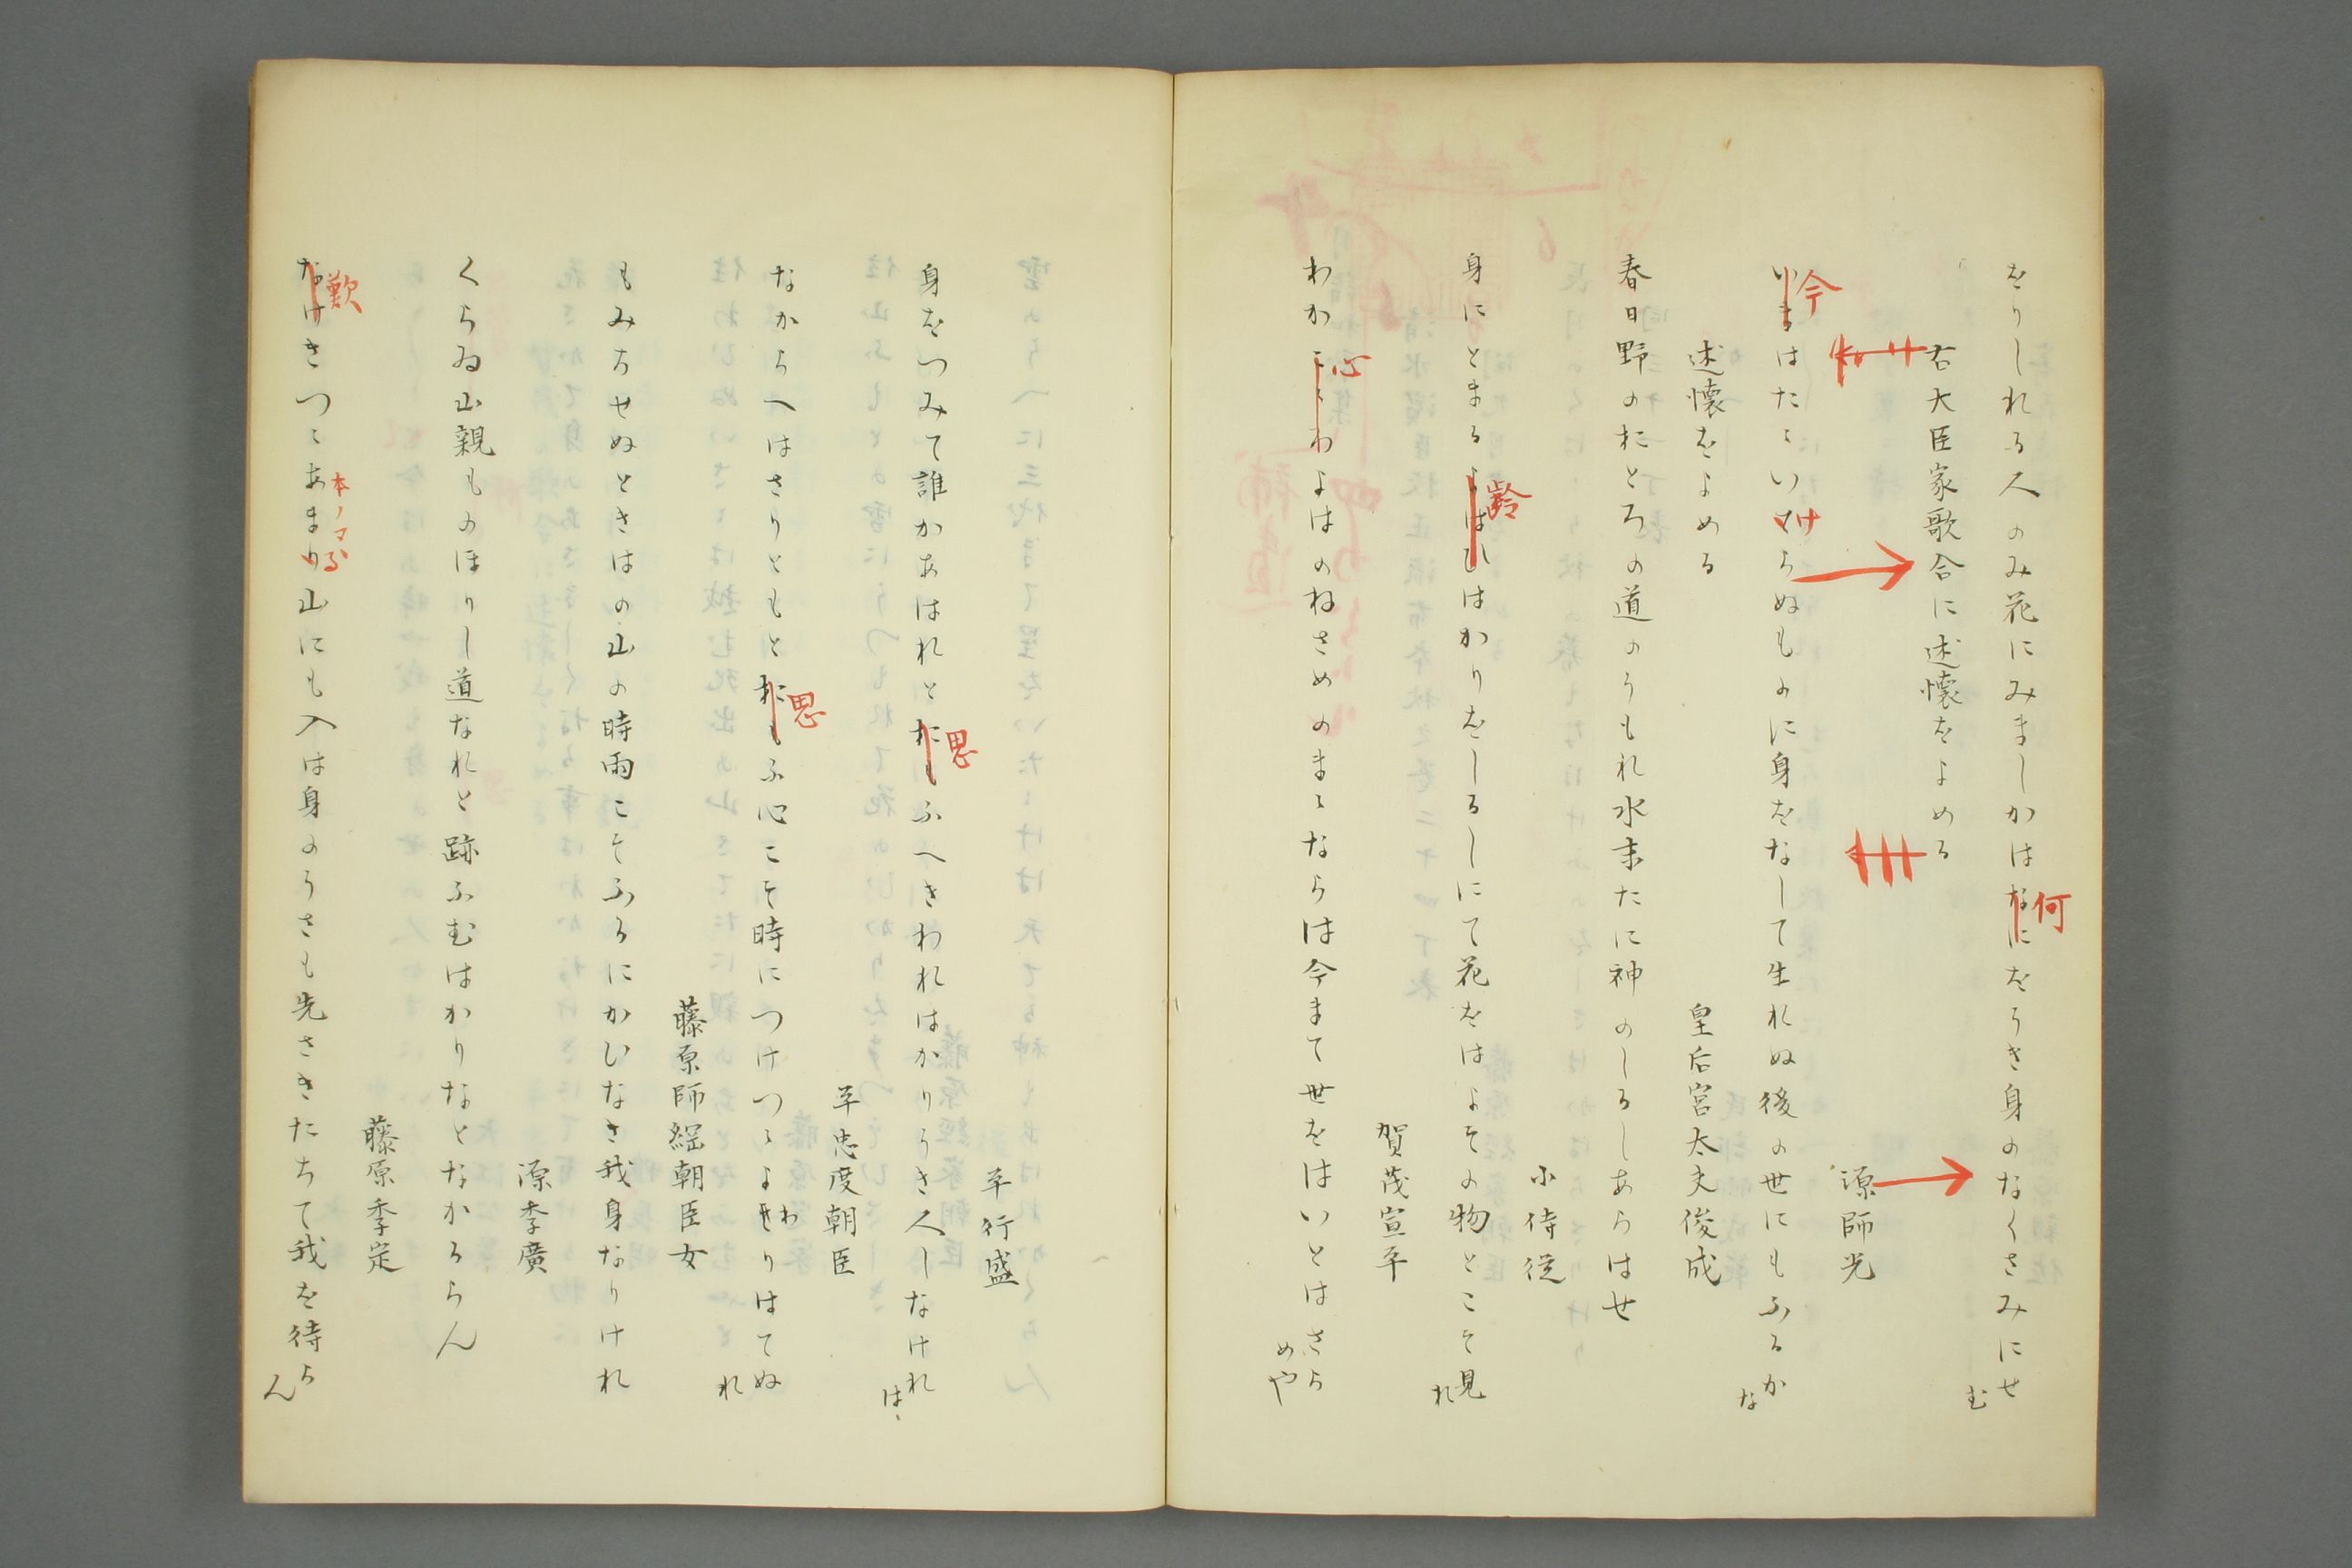 をりしれる人のみ花にみましかはなにをうき身のなくさみにせむ
何
右大臣家歌合に述懐をよめる
源師光
いまはたゝいけらぬものに身をなして生れぬ後の世にもふるかな
今
け
述懐をよめる
皇后宮太夫俊成
春日野のおとろの道のうもれ水末たに神のしるしあらはせ
小侍従
身にとまるよはひはかりをしるしにて花をはよその物とこそ見れ
齢
賀茂宣平
わかこゝわよはのねさめのまゝならは今まて世をはいとはさらめや
心
平行盛
身をつみて誰かあはれとおもふへきわれはかりうき人しなけれは
思
平忠度朝臣
なからへはさりともとおもふ心こそ時につけつゝよわりはてぬれ
思
わ
藤原師綱朝臣女
もみちせぬときはの山の時雨こそふるにかひなき我身なりけれ
源季廣
くらゐ山親ものほりし道なれと跡ふむはかりなとなかるらん
藤原季定
なけきつゝあまり山にも入は身のうさも先さきたちて我を待らん
歎
本ノマゝ
る